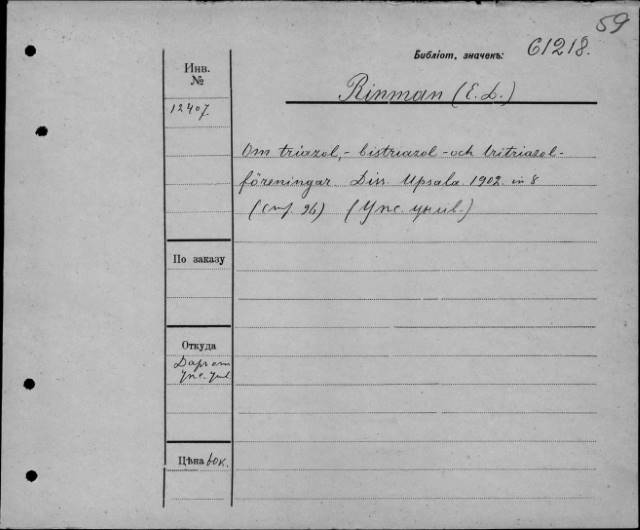 59
Библіот. значекъ: 61218.
Инв.
№
Rinman (E. L.)
12407.
Om triazol,- bistriazol- och tritriazol-
föreningar. Diss. Upsala. 1902. in 8
(стр. 96) (Упс. унив.)
По заказу
Откуда
Дар от
Упс. унив.
Цѣна 60к.